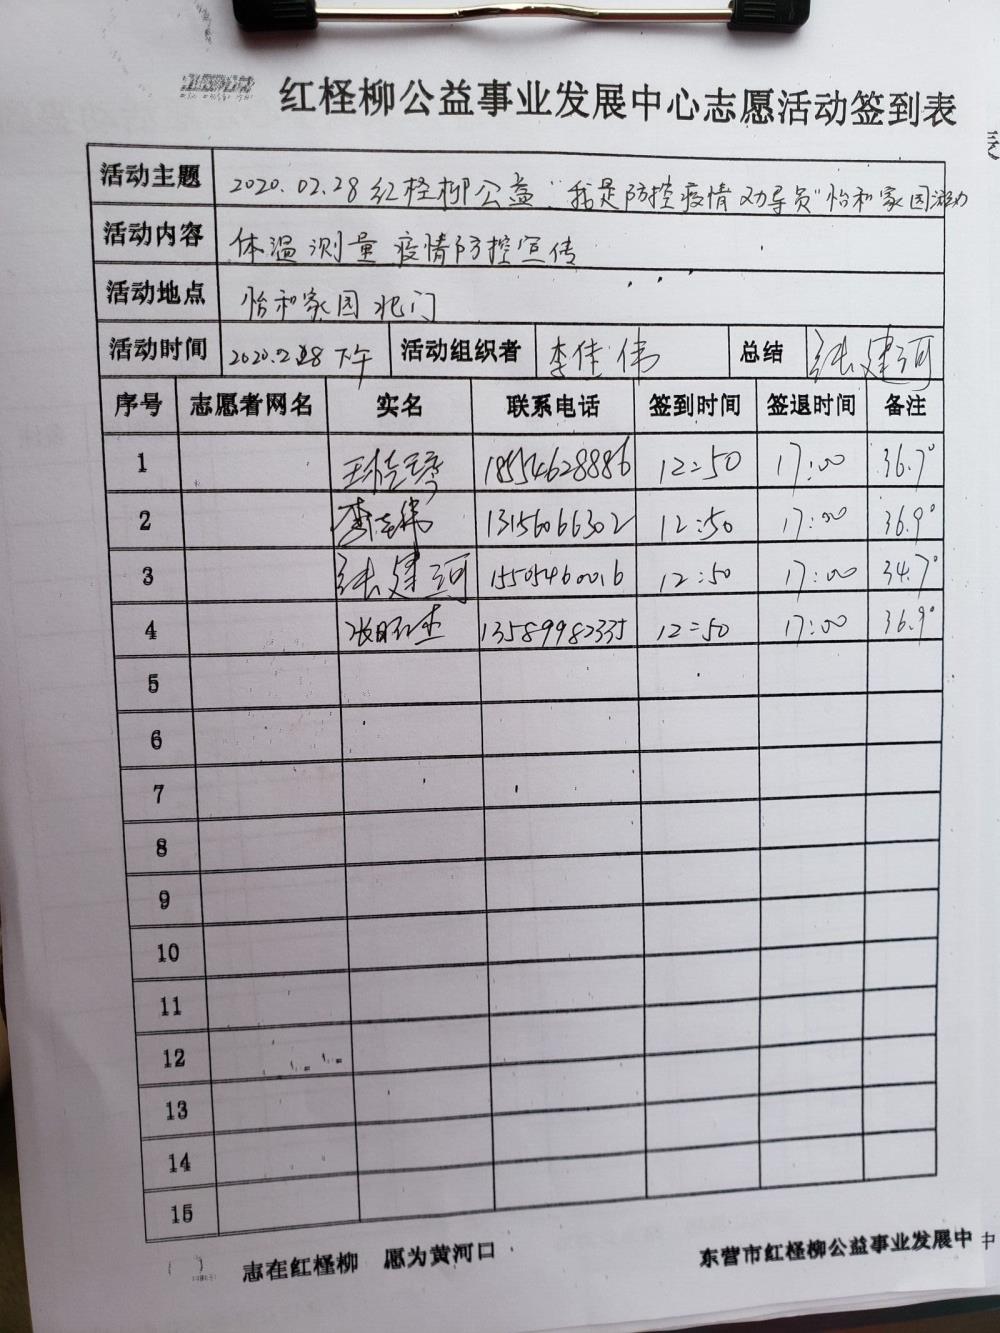 红柽柳公益事业发展中心志愿活动签到表
活动主题 2020.02.28 红柽柳公益 "我是防控疫情劝导员"怡和家园活动
活动内容 体温测量 疫情防控宣传
活动地点 怡和家园北门
活动时间 2020.2.28 下午 活动组织者 李佳伟 总结 张建河
序号 志愿者网名 实名 联系电话 签到时间 签退时间 备注
1 18554628886 12:50 17:00 36.7°
2 李佳伟 13156066302 12:50 17:00 36.9°
3 张建河 15505460016 12:50 17:00 34.7°
4 13589982335 12:50 17:00 36.9°
5
6
7
8
9
10
11
12
13
14
15
志在红柽柳 愿为黄河口 东营市红柽柳公益事业发展中